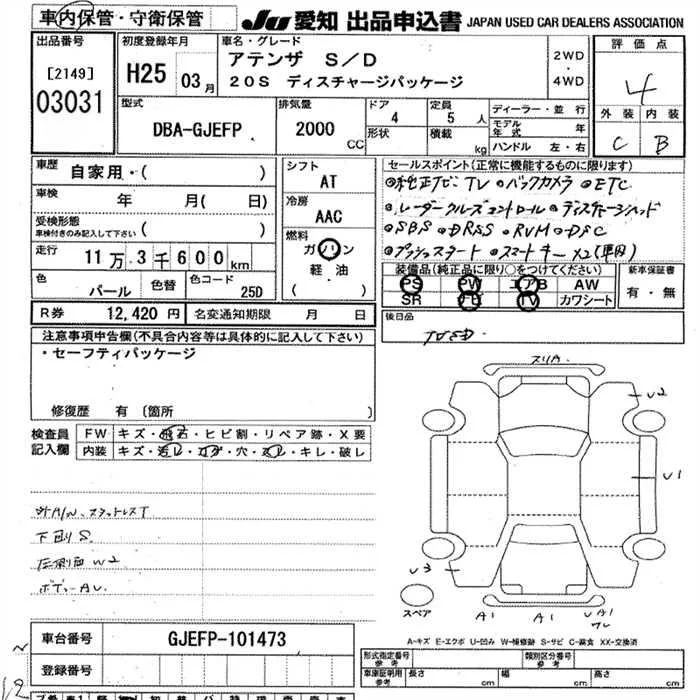 車内保管・守衛保管
JU 愛知 出品申込書 JAPAN USED CAR DEALERS ASSOCIATION
出品番号
[2149]
03031
初度登録年月
H25 03月
車名・グレード
アテンザ S/D
20S ディスチャージパッケージ
2WD
・
4WD
評価点
4
外装 内装
C B
型式
DBA-GJEFP
排気量
2000 CC
ドア
4
形状
定員
5 人
積載
kg
ディーラー・並行
モデル年式 年
ハンドル 左・右
車歴
自家用・( )
車検
年 月( 日)
受検形態
車検付きのみ記入して下さい
( )
走行
11万3千600km
色
パール
色替
色コード
25D
シフト
AT
冷房
AAC
燃料
ガソリン
軽油
( )
セールスポイント(正常に機能するものに限ります)
◎純正ナビ TV ◎バックカメラ ◎ETC
◎レーダークルーズコントロール ◎ディスチャージヘッド
◎SBS ◎DRSS ◎RVM ◎DSC
◎プッシュスタート ◎スマートキー×2(車内)
装備品(純正品に限り○をつけてください)
PS PW エアB AW
SR ナビ TV カワシート
新車保証書
有・無
R券 12,420円
名変通知期限 月 日
後日品
注意事項申告欄(不具合内容等は具体的に記入して下さい)
・セーフティパッケージ
修復歴 有 [箇所 ]
検査員
記入欄
FW キズ・飛石・ヒビ割・リペア跡・X要
内装 キズ・汚レ・コゲ・穴・スレ・キレ・破レ
外A/W、スタッドレスT
下廻りS
左側面W2
ボディーAU
スリA
U2
U1
U3
スペア
A1
U
A1
車台番号
GJEFP-101473
登録番号
A-キズ E-エクボ U-凹み W-補修跡 S-サビ C-腐食 XX-交換済
形式指定番号
参考
類別区分番号
参考
車庫証明用
参考
長さ cm
幅 cm
高さ cm